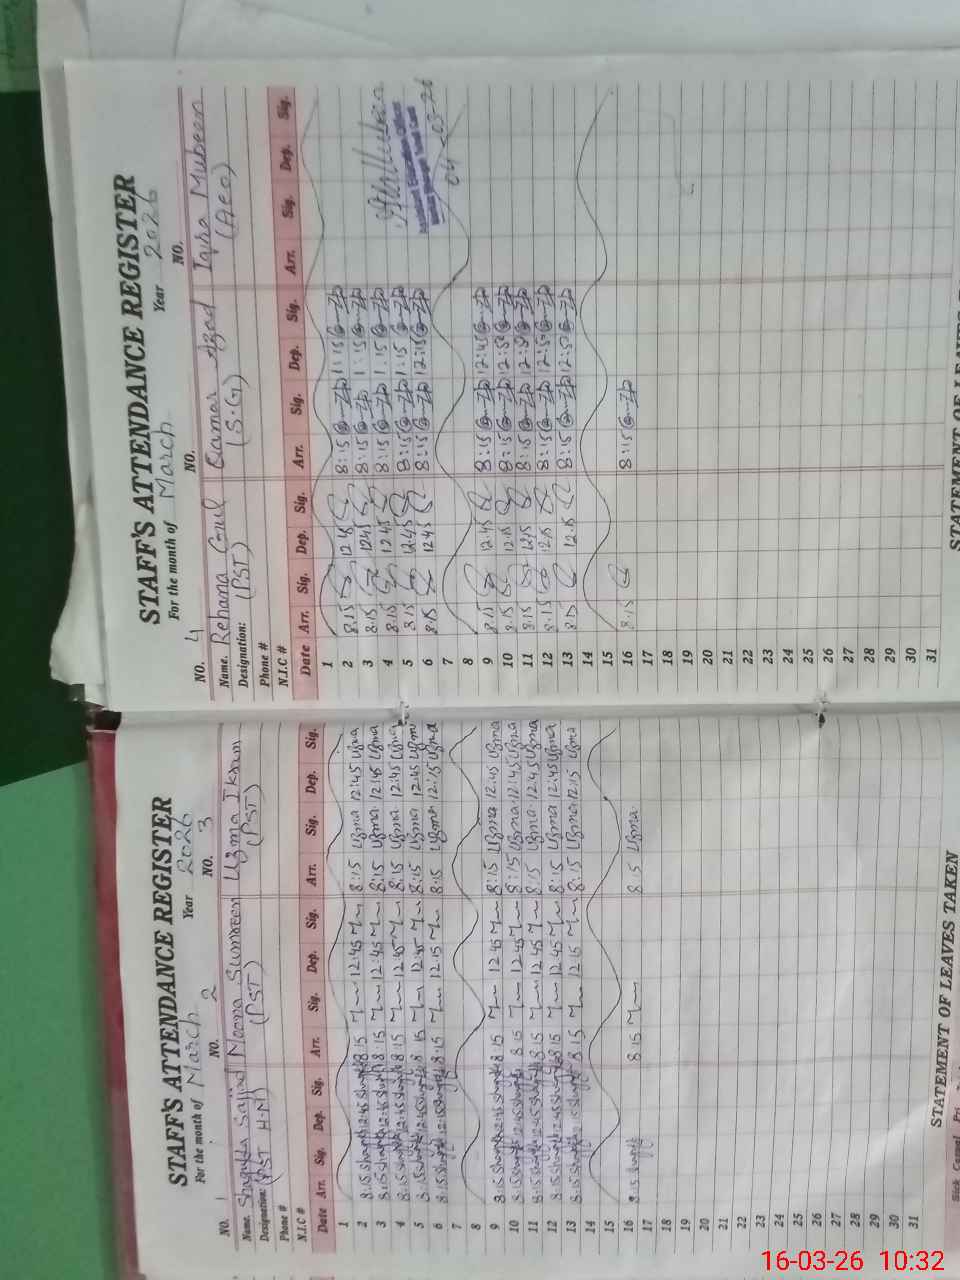 STAFF'S ATTENDANCE REGISTER
For the month of March Year 2026
NO. 1 NO. 2 NO. 3
Name. Shagufta Sajjad Noona Sumreen Uzma Ikram
Designation: (PST H.M) (PST) (PST)
Phone #
N.I.C #
Date Arr. Sig. Dep. Sig. Arr. Sig. Dep. Sig. Arr. Sig. Dep. Sig.
1
2 8:15 12:45 8:15 12:45 8:15 Uzma 12:45 Uzma
3 8:15 12:45 8:15 12:45 8:15 Uzma 12:45 Uzma
4 8:15 12:45 8:15 12:45 8:15 Uzma 12:45 Uzma
5 8:15 12:45 8:15 12:45 8:15 Uzma 12:45 Uzma
6 8:15 12:15 8:15 12:15 8:15 Uzma 12:15 Uzma
7
8
9 8:15 12:45 8:15 12:45 8:15 Uzma 12:45 Uzma
10 8:15 12:45 8:15 12:45 8:15 Uzma 12:45 Uzma
11 8:15 12:45 8:15 12:45 8:15 Uzma 12:45 Uzma
12 8:15 12:45 8:15 12:45 8:15 Uzma 12:45 Uzma
13 8:15 12:15 8:15 12:15 8:15 Uzma 12:15 Uzma
14
15
16 8:15 8:15 8:15 Uzma
17
18
19
20
21
22
23
24
25
26
27
28
29
30
31
STATEMENT OF LEAVES TAKEN
Sick Casual Pri
STAFF'S ATTENDANCE REGISTER
For the month of March Year 2026
NO. 4 NO. NO.
Name. Rehana Gul Qamar Azad Iqra Mubeen
Designation: (PST) (S.G) (Aeo)
Phone #
N.I.C #
Date Arr. Sig. Dep. Sig. Arr. Sig. Dep. Sig. Arr. Sig. Dep. Sig.
1
2 8:15 12:45 8:15 1:15
3 8:15 12:45 8:15 1:15
4 8:15 12:45 8:15 1:15
5 8:15 12:45 8:15 1:15
6 8:15 12:45 8:15 12:15
Assistant Education Officer
04-03-26
7
8
9 8:15 12:45 8:15 12:45
10 8:15 12:15 8:15 12:50
11 8:15 12:15 8:15 12:50
12 8:15 12:15 8:15 12:50
13 8:15 12:15 8:15 12:50
14
15
16 8:15 8:15
17
18
19
20
21
22
23
24
25
26
27
28
29
30
31
STATEMENT OF LEAVES
16-03-26 10:32